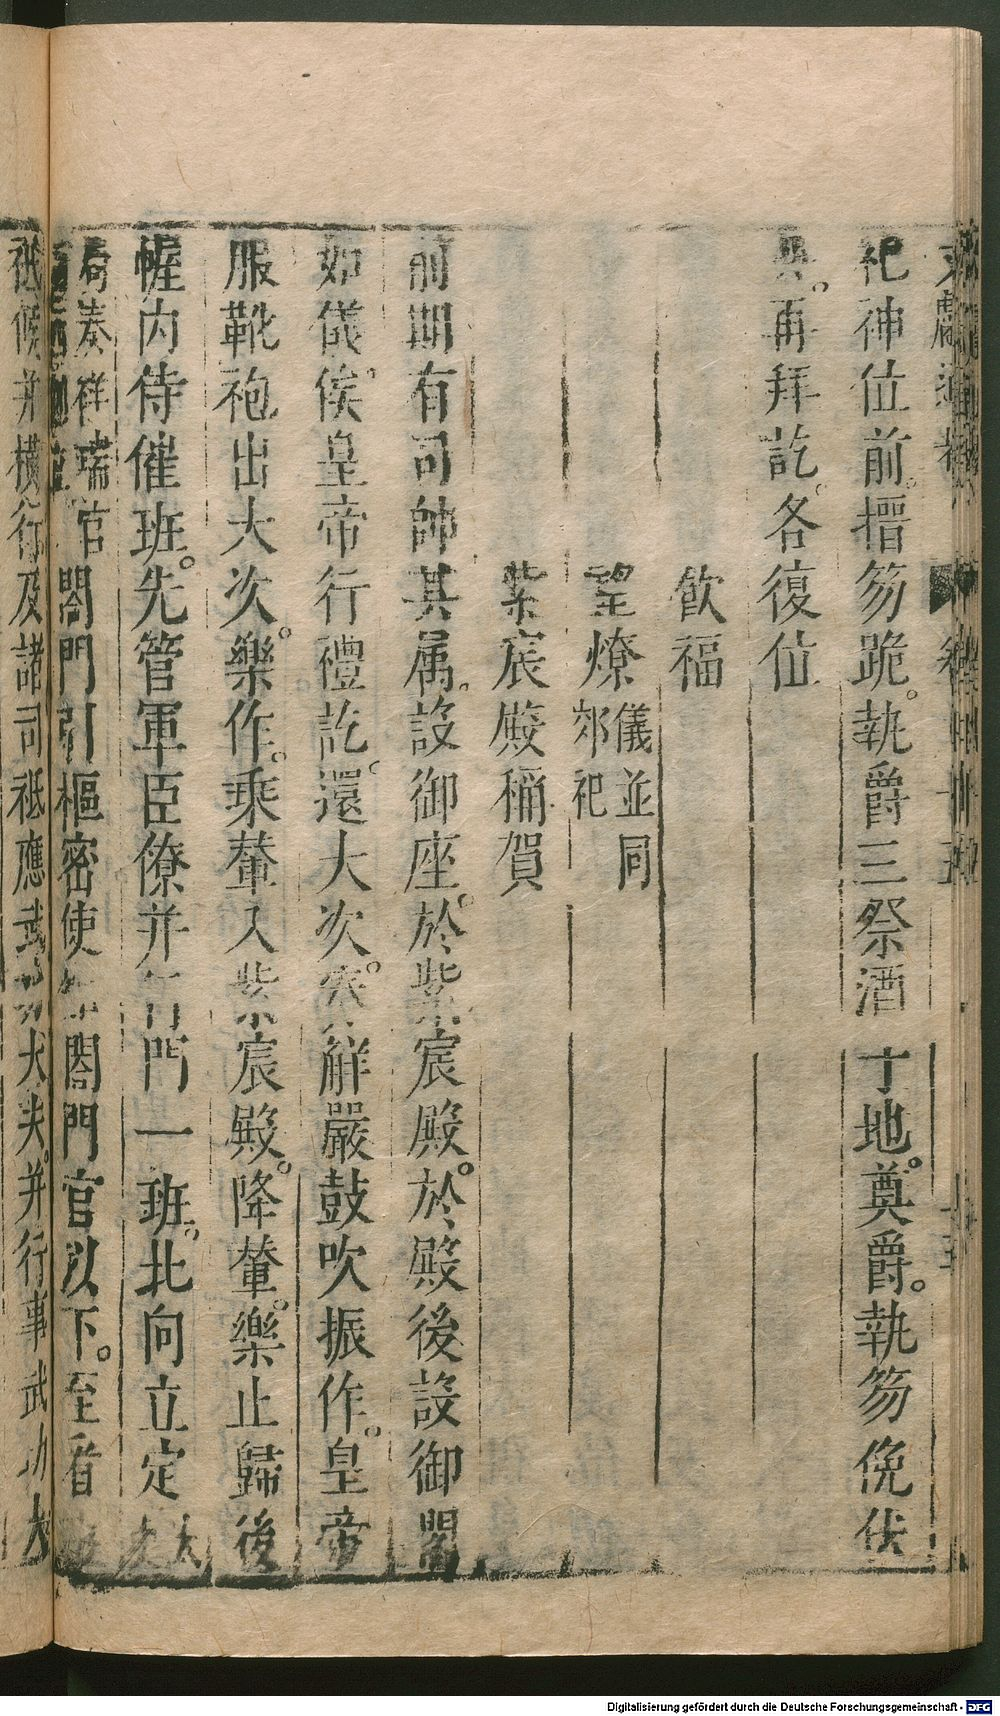 祀神位前。搢笏跪。執爵三祭酒 于地。奠爵。執笏俛伏
興。再拜訖。各復位
飲福
望燎 儀並同
郊祀
紫宸殿稱賀
前期有司帥其属。設御座。於紫宸殿。於殿後設御閣
如儀。俟皇帝行禮訖。還大次。 解嚴鼓吹振作。皇帝
服靴袍出大次。樂作。乘輦入紫宸殿。降輦。樂止歸後
幄內侍催班。先管軍臣僚并 門一班。北向立定
奏祥瑞官閤門引樞密使 閤門官以下。至看
祇候并橫行及諸司祇應武 大夫。并行事武功大
Digitalisierung gefördert durch die Deutsche Forschungsgemeinschaft - DFG